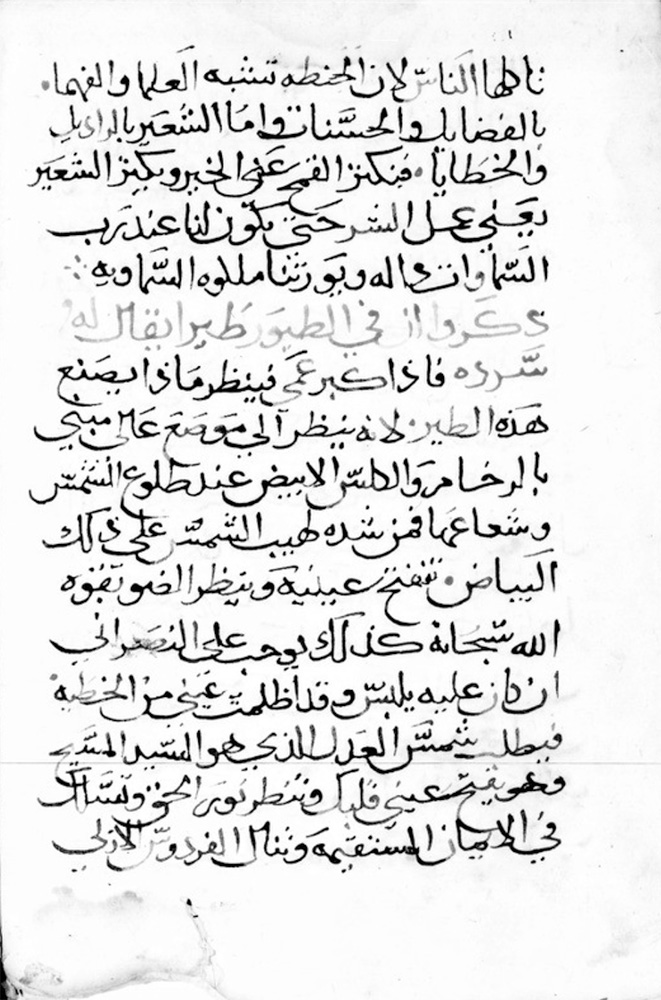 تاكلها الناس لان الحنطه تشبه العلما والفهما.
بالفضايل والحسنات واما الشعير بالرذايل
والخطايا. فنكنز القمح يعني الخير ونكنز الشعير
يعني عمل الشر حتى يكون لنا عند رب
السماوات داله ويورثنا ملكوه السماويه
ذكروا ان في الطيور طيرا يقال له
سرده فاذا كبر عمي فينظر ماذا يصنع
هذه الطير. لانه ينظر الي موضع عالي مبني
بالرخام والكلس الابيض عند طلوع الشمس
وشعاعها فمن شده لهيب الشمس على ذلك
البياض. تنفتح عينيه وينظر الضو بقوه
الله سبحانه كذلك يوجب على النصراني
ان كان عليه يلبس وقد اظلمت عيني من الخطيه
فيطلب شمس العدل الذي هو السيد المسيح
وهو يفتح عيني قلبك وتنظر نور الحق وتسلك
في الايمان المستقيمه وتنال الفردوس الازلي